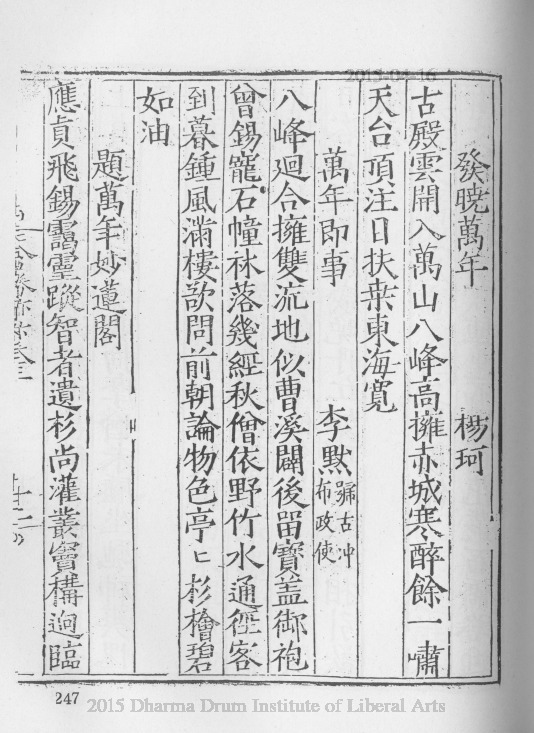 2015-04-16
發曉萬年 楊珂
古殿雲開入萬山八峰高擁赤城寒醉餘一嘯
天台頂注日扶桒東海寬
萬年即事 李默號古冲布政使
八峰迴合擁雙流地似曹溪闢後畱寶盖御袍
曾錫寵石幢祑落幾經秋僧依野竹水通徑客
到暮鍾風滿樓欲問前朝論物色亭亭杉檜碧
如油
題萬年妙蓮閣
應貞飛錫靄靈蹤智者遺杉尚灌叢竇構迥臨
247
2015 Dharma Drum Institute of Liberal Arts